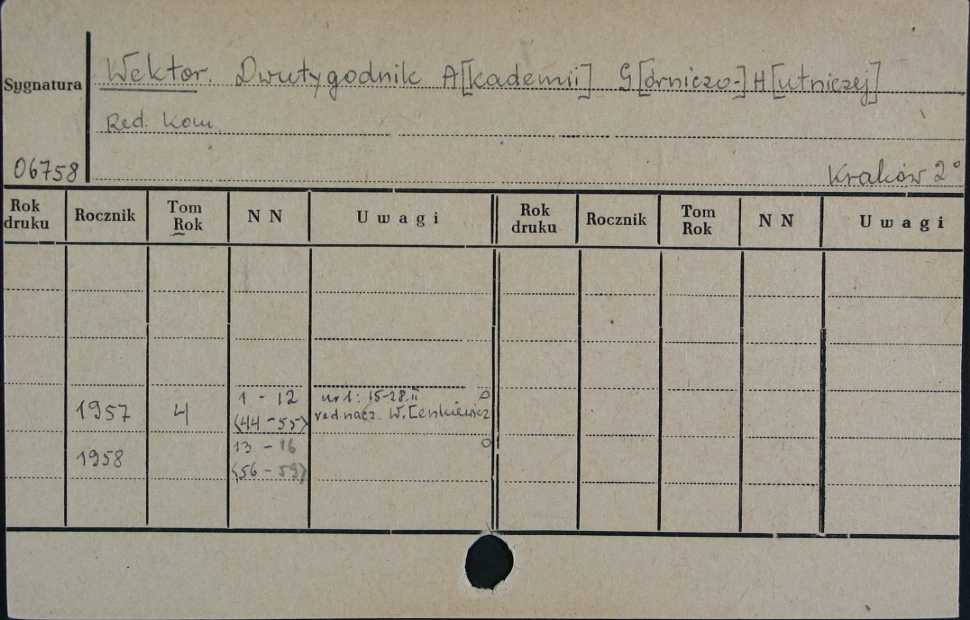 Sygnatura
Wektor. Dwutygodnik A[kademii] G[órniczo-]H[utniczej]
Red. Kom.
06758
Kraków 2°
Rok druku Rocznik Tom Rok N N Uwagi Rok druku Rocznik Tom Rok N N Uwagi
1957 4 1 - 12 nr 1: 15-28.II
(44 - 55) red nacz. W.
1958 13 - 16
(56 - 59)